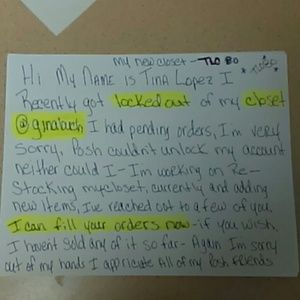 my new closet - TLC BO
Hi My Name is Tina Lopez I
Recently got locked out of my closet
@ginabuch I had pending orders, I'm very
Sorry, Posh couldnt unlock my account
neither could I - I'm working on Re-
Stocking mycloset, currently and adding
new items, I've reached out to a few of you
I can fill your orders now - if you wish,
I havent sold any of it so far - Again Im sorry
out of my hands I appriciate all of my Posh friends